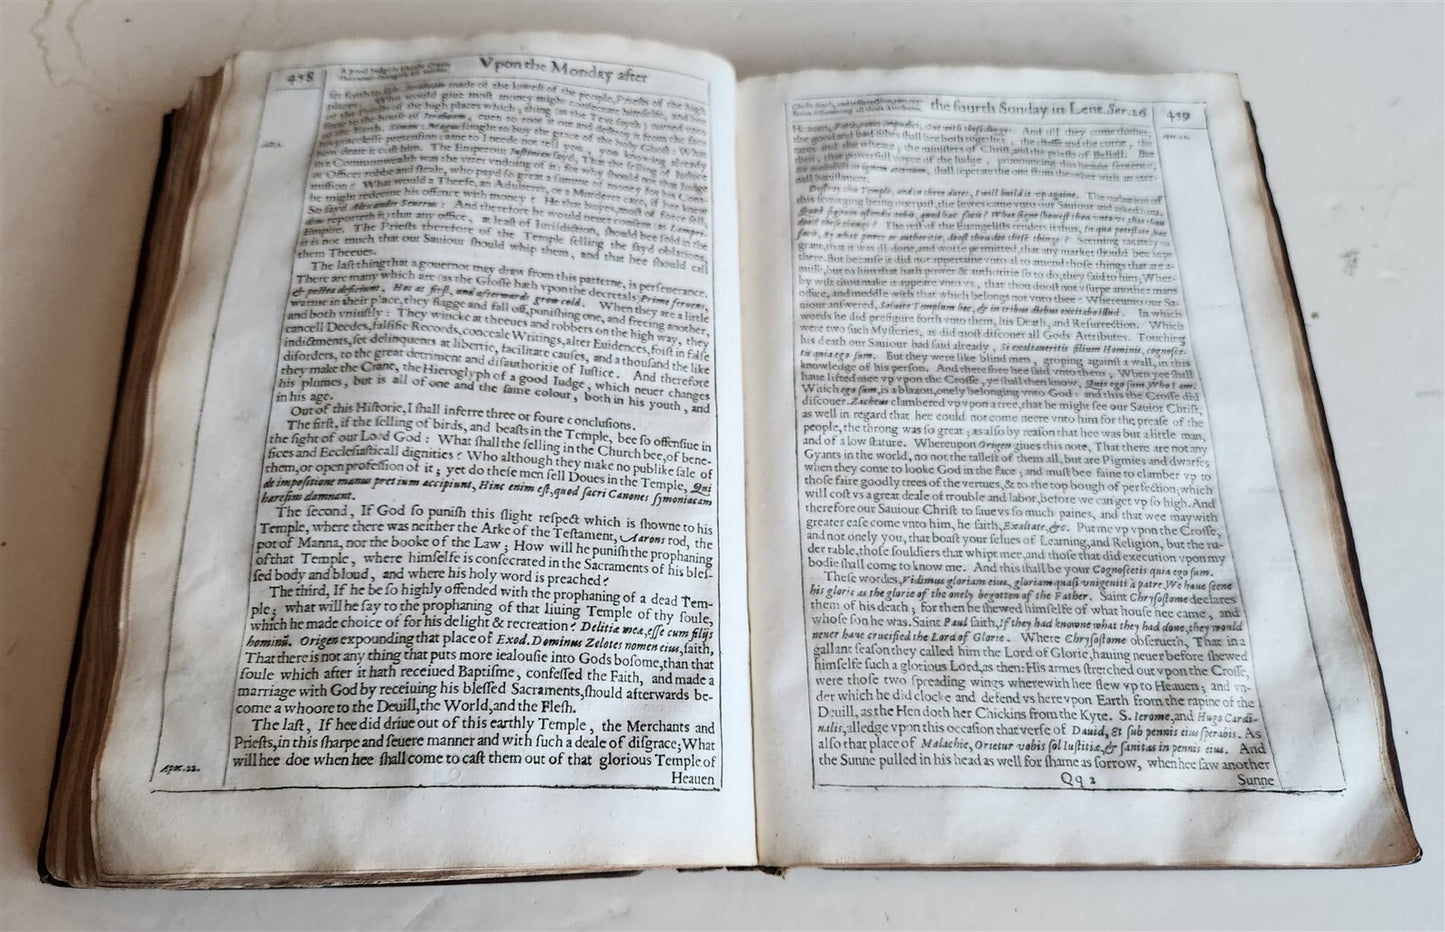 458
Vpon the Monday after
made of the lowest of the people, Priests of the high
places. Who would giue most money might consecrate himselfe, and bee
of the Priests of the high places which thing (as the Text sayth) turned vnto
sinne to the house of Ieroboam, euen to roote it out and destroy it from the face
of the Earth. Simon Magus sought to buy the grace of the holy Ghost: What
how deare it cost him. The Emperour Iustinian sayd, That the selling of Iustice
in a Commonwealth was the verie vndoing of it; for why should not that Iudge
or Officer robbe and steale, who payd so great a summe of money for his Com-
mission? What would a Theefe, an Adulterer, or a Murderer care, if hee know
he might redeeme his offence with money? He that buyes, must of force sell,
So sayd Alexander Seuerus: And therefore he would neuer consent (as Lampri-
dius reporteth it) that any office, at least of Iurisdiction, should bee sold in the
Empire. The Priests therefore of the Temple selling the sayd oblations,
it is not much that our Sauiour should whip them, and that hee should call
them Theeues.
The last thing that a gouernor may draw from this patterne, is perseuerance.
There are many which are (as the Glosse hath vpon the decretals) Prime feruens,
& postea deficiunt, Hot at first, and afterwards grow cold. When they are a little
warme in their place, they flagge and fall off, punishing one, and freeing another,
and both vniustly: They wincke at theeues and robbers on the high way, they
cancell Deedes, falsifie Records, conceale Writings, alter Euidences, foist in false
indictments, set delinquents at libertie, facilitate causes, and a thousand the like
disorders, to the great detriment and disauthoritie of Iustice. And therefore
they make the Crane, the Hieroglyph of a good Iudge, which neuer changes
his plumes, but is all of one and the same colour, both in his youth, and
in his age.
Out of this Historie, I shall inferre three or foure conclusions.
The first, if the selling of birds, and beasts in the Temple, bee so offensiue in
the sight of our Lord God: What shall the selling in the Church bee, of bene-
fices and Ecclesiasticall dignities? Who although they make no publike sale of
them, or open profession of it; yet do these men sell Doues in the Temple, Qui
de impositione manus pretium accipiunt, Hinc enim est, quod sacri Canones symoniacam
haresim damnant.
The second, If God so punish this slight respect which is showne to his
Temple, where there was neither the Arke of the Testament, Aarons rod, the
pot of Manna, nor the booke of the Law; How will he punish the prophaning
of that Temple, where himselfe is consecrated in the Sacraments of his bles-
sed body and bloud, and where his holy word is preached?
The third, If he be so highly offended with the prophaning of a dead Tem-
ple; what will he say to the prophaning of that liuing Temple of thy soule,
which he made choice of for his delight & recreation? Delitiæ meæ, esse cum filijs
hominũ. Origen expounding that place of Exod. Dominus Zelotes nomen eius, saith,
That there is not any thing that puts more iealousie into Gods bosome, than that
soule which after it hath receiued Baptisme, confessed the Faith, and made a
marriage with God by receiuing his blessed Sacraments, should afterwards be-
come a whoore to the Deuill, the World, and the Flesh.
The last, If hee did driue out of this earthly Temple, the Merchants and
Priests, in this sharpe and seuere manner and with such a deale of disgrace; What
Apoc. 22.
will hee doe when hee shall come to cast them out of that glorious Temple of
Heauen
the fourth Sonday in Lent. Ser. 26
459
And till they come thither,
the good and bad fishes shall bee both together, the chaffe and the corne, the
tares and the wheate; the ministers of Christ, and the priests of Beliall. But
then, that powerfull voyce of the Iudge, pronouncing this heauie sentence,
shall seperate the one from the other with an eter-
nall banishment.
Destroy this Temple, and in three dayes, I will build it vp againe. The vexation of
this scourging being ouerpast, the Iewes came vnto our Sauiour and asked him,
Quod signum ostendis nobis, quod hæc facis? What signe shewest thou vnto vs, that thou
doest these things? The rest of the Euangelists renders it thus, In qua potestate hæc
facis, By what power or authoritie, doost thou doe these things? Seeming tacitely to
grant, that it was ill done, and worse permitted, that any market should bee kept
there. But because it did not appertaine vnto al to amend those things that are a-
misse, but to him that hath power & authoritie so to do, they said to him, Wher-
by wilt thou make it appeare vnto vs, that thou doost not vsurpe another mans
office, and meddle with that which belongs not vnto thee? Whereunto our Sa-
uiour answered, Soluite Templum hoc, & in tribus diebus excitabo illud. In which
words he did prefigure forth vnto them, his Death, and Resurrection. Which
were two such Mysteries, as did most discouer all Gods Attributes. Touching
his death our Sauiour had said already, Si exaltaueritis filium Hominis, cognosce-
tis quia ego sum. But they were like blind men, groping against a wall, in this
knowledge of his person. And therefore hee said vnto them, When yee shall
haue lifted mee vp vpon the Crosse, ye shall then know, Quis ego sum, Who I am.
Which ego sum, is a blazon, onely belonging vnto God: and this the Crosse did
discouer. Zacheus clambered vp vpon a tree, that he might see our Sauior Christ,
as well in regard that hee could not come neere vnto him for the prease of the
people, the throng was so great; as also by reason that hee was but a little man,
and of a low stature. Whereupon Origen giues this note, That there are not any
Gyants in the world, no not the tallest of them all, but are Pigmies and dwarfes
when they come to looke God in the face; and must bee faine to clamber vp to
those faire goodly trees of the vertues, & to the top bough of perfection; which
will cost vs a great deale of trouble and labor, before we can get vp so high. And
therefore our Sauiour Christ to saue vs so much paines, and that wee may with
greater ease come vnto him, he saith, Exaltate, &c. Put me vp vpon the Crosse,
and not onely you, that boast your selues of Learning, and Religion, but the ru-
der rable, those souldiers that whipt mee, and those that did execution vpon my
bodie shall come to know me. And this shall be your Cognoscetis quia ego sum.
These wordes, Vidimus gloriam eius, gloriam quasi vnigeniti à patre, We haue seene
his glorie as the glorie of the onely begotten of the Father. Saint Chrysostome declares
them of his death; for then he shewed himselfe of what house hee came, and
whose son he was. Saint Paul saith, If they had knowne what they had done, they would
neuer haue crucified the Lord of Glorie. Where Chrysostome obserueth, That in a
gallant season they called him the Lord of Glorie, hauing neuer before shewed
himselfe such a glorious Lord, as then: His armes stretched out vpon the Crosse,
were those two spreading wings wherewith hee flew vp to Heauen; and vn-
der which he did clocke and defend vs here vpon Earth from the rapine of the
Deuill, as the Hen doth her Chickins from the Kyte. S. Ierome, and Hugo Cardi-
nalis, alledge vpon this occasion that verse of Dauid, Et sub pennis eius sperabis. As
also that place of Malachie, Orietur vobis sol Iustitiæ, & sanitas in pennis eius. And
the Sunne pulled in his head as well for shame as sorrow, when hee saw another
Qq 2
Sunne